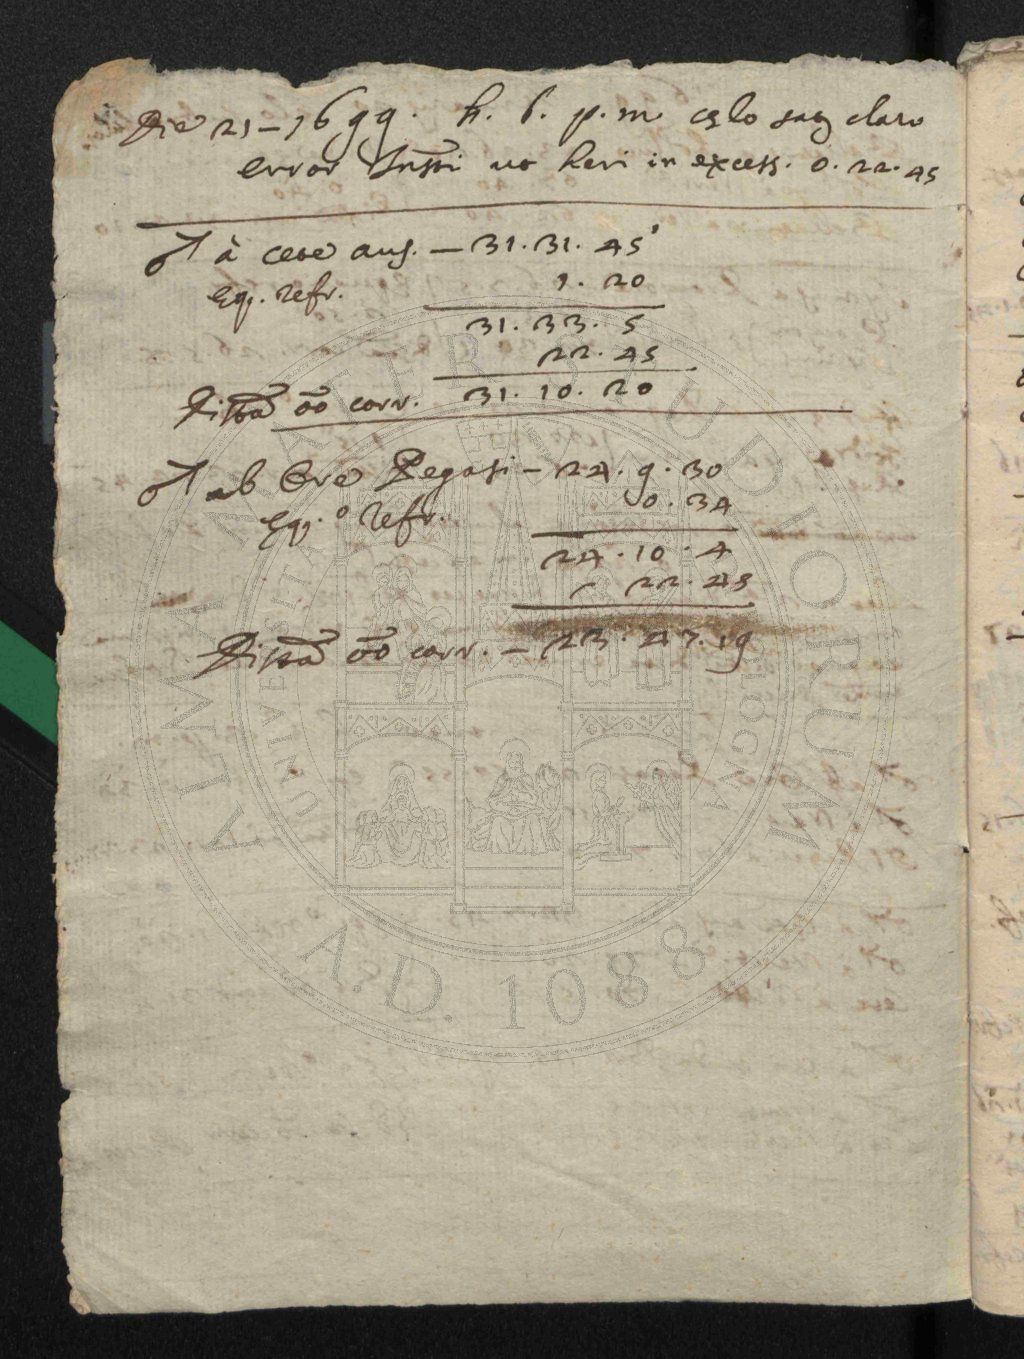 Die 21 - 1699. h. 6. p. m. cęlo satis claro
error Instri uo heri in excess. 0. 22. 45
♂ à cete aus. - 31. 31. 45'
Eq. refr. 1. 20
31. 33. 5
22. 45
Distã oō corr. 31. 10. 20
♂ ab Ore Pegasi - 24. 9. 30
Eq.o Refr. 0. 34
24. 10. 4
- 22. 45
Distã oō corr. - 23. 47. 19
ALMA MATER STUDIORUM
UNIVERSITÀ DI BOLOGNA
A.D. 1088